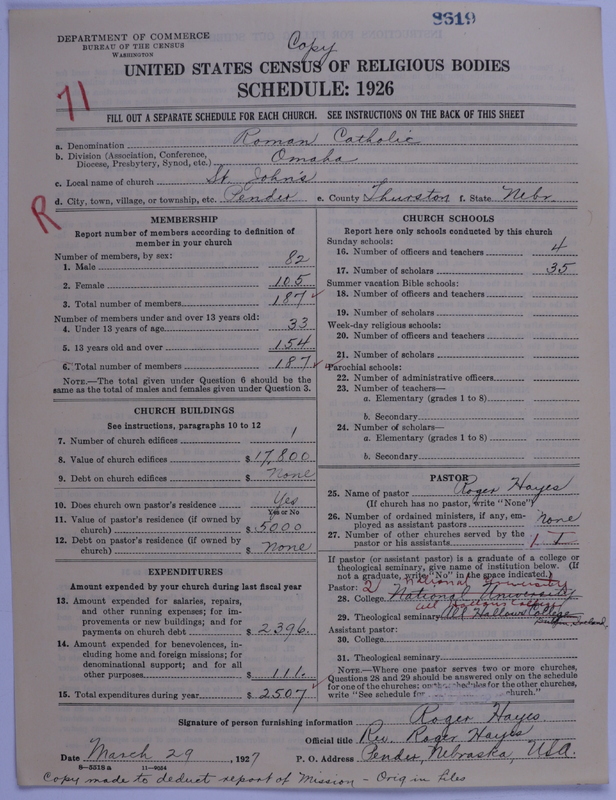 8619
DEPARTMENT OF COMMERCE
BUREAU OF THE CENSUS
WASHINGTON
Copy
UNITED STATES CENSUS OF RELIGIOUS BODIES
SCHEDULE: 1926
71
FILL OUT A SEPARATE SCHEDULE FOR EACH CHURCH. SEE INSTRUCTIONS ON THE BACK OF THIS SHEET
a. Denomination Roman Catholic
b. Division (Association, Conference, Diocese, Presbytery, Synod, etc.) Omaha
c. Local name of church St. John's
R
d. City, town, village, or township, etc. Pender e. County Thurston f. State Nebr.
MEMBERSHIP
Report number of members according to definition of
member in your church
Number of members, by sex:
1. Male 82
2. Female 105
3. Total number of members 187
Number of members under and over 13 years old:
4. Under 13 years of age 33
5. 13 years old and over 154
6. Total number of members 187
NOTE.—The total given under Question 6 should be
the same as the total of males and females given under Question 3.
CHURCH BUILDINGS
See instructions, paragraphs 10 to 12
7. Number of church edifices 1
8. Value of church edifices $17,800
9. Debt on church edifices $ None
10. Does church own pastor's residence Yes
Yes or No
11. Value of pastor's residence (if owned by
church) $ 5000
12. Debt on pastor's residence (if owned by
church) $ None
EXPENDITURES
Amount expended by your church during last fiscal year
13. Amount expended for salaries, repairs,
and other running expenses; for im-
provements or new buildings; and for
payments on church debt $ 2396.
14. Amount expended for benevolences, in-
cluding home and foreign missions; for
denominational support; and for all
other purposes $ 111.
15. Total expenditures during year $ 2507
CHURCH SCHOOLS
Report here only schools conducted by this church
Sunday schools:
16. Number of officers and teachers 4
17. Number of scholars 35
Summer vacation Bible schools:
18. Number of officers and teachers
19. Number of scholars
Week-day religious schools:
20. Number of officers and teachers
21. Number of scholars
Parochial schools:
22. Number of administrative officers
23. Number of teachers—
a. Elementary (grades 1 to 8)
b. Secondary
24. Number of scholars—
a. Elementary (grades 1 to 8)
b. Secondary
PASTOR
25. Name of pastor Roger Hayes
(If church has no pastor, write "None")
26. Number of ordained ministers, if any, em-
ployed as assistant pastors None
27. Number of other churches served by the
pastor or his assistants 1 I
If pastor (or assistant pastor) is a graduate of a college or
theological seminary, give name of institution below. (If
not a graduate, write "No" in the space indicated.)
Pastor: 21 National University
28. College National University
All Hallows College
29. Theological seminary All Hallows College
Ireland
Assistant pastor:
30. College
31. Theological seminary
NOTE.—Where one pastor serves two or more churches,
Questions 28 and 29 should be answered only on the schedule
for one of the churches; on the schedules for the other churches,
write "See schedule for church."
Signature of person furnishing information Roger Hayes.
Official title Rev. Roger Hayes
Date March 29, 1927 P. O. Address Pender, Nebraska, USA.
8—5518a 11—9054
Copy made to deduct report of Mission - Orig in files